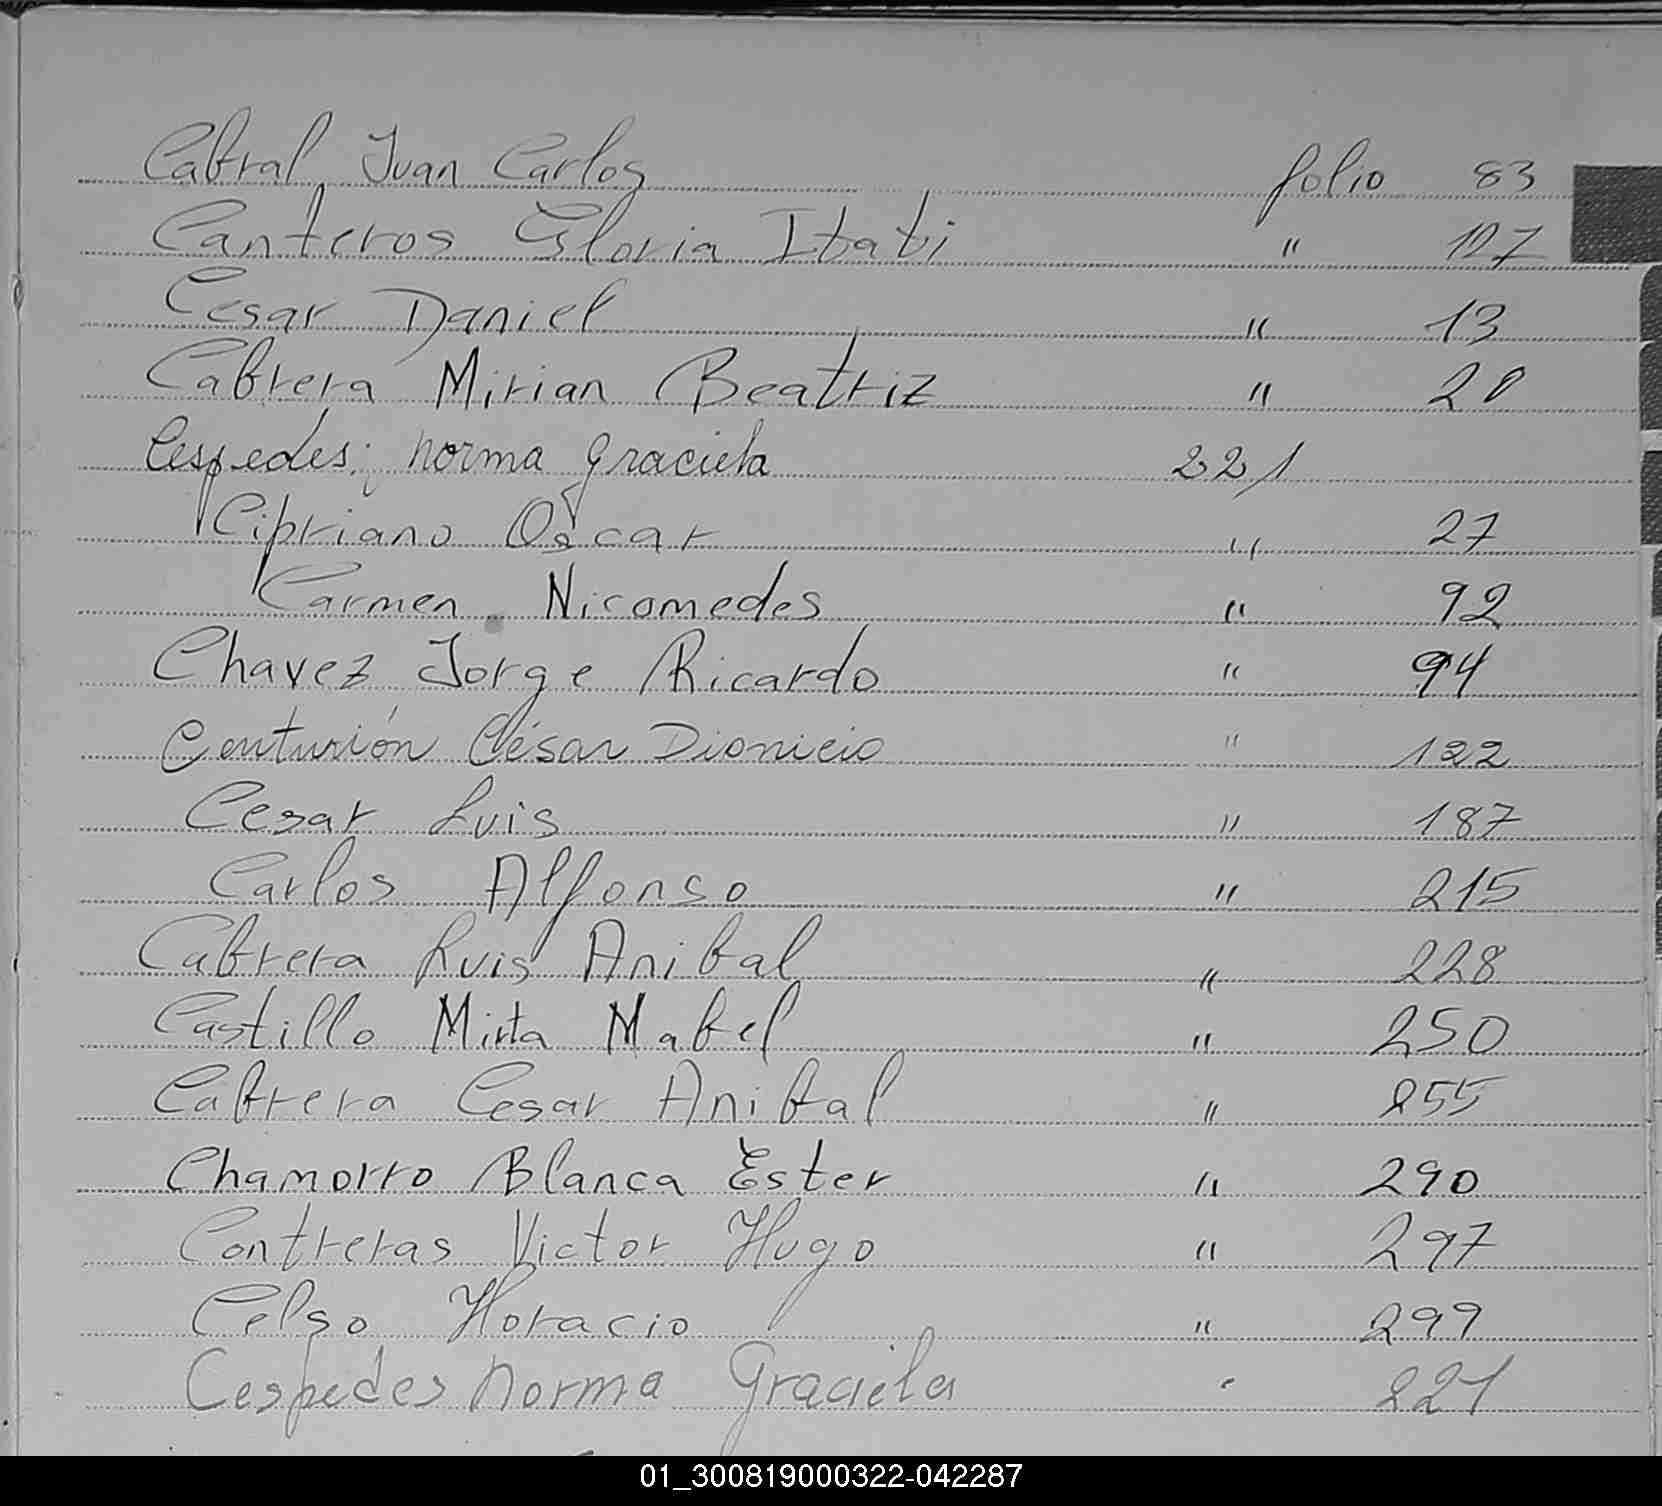 Cabral, Juan Carlos folio 83
Canteros Gloria Itati " 127
Cesar Daniel " 13
Cabrera Mirian Beatriz " 20
Cespedes; norma graciela 221
Cipriano Oscar " 27
Carmen Nicomedes " 92
Chavez Jorge Ricardo " 94
Centurión César Dionicio " 122
Cesar Luis " 187
Carlos Alfonso " 215
Cabrera Luis Anibal " 228
Castillo Mirta Mabel " 250
Cabrera Cesar Anibal " 255
Chamorro Blanca Ester " 290
Contreras Victor Hugo " 297
Celso Horacio " 299
Cespedes Norma Graciela " 221
01_300819000322-042287